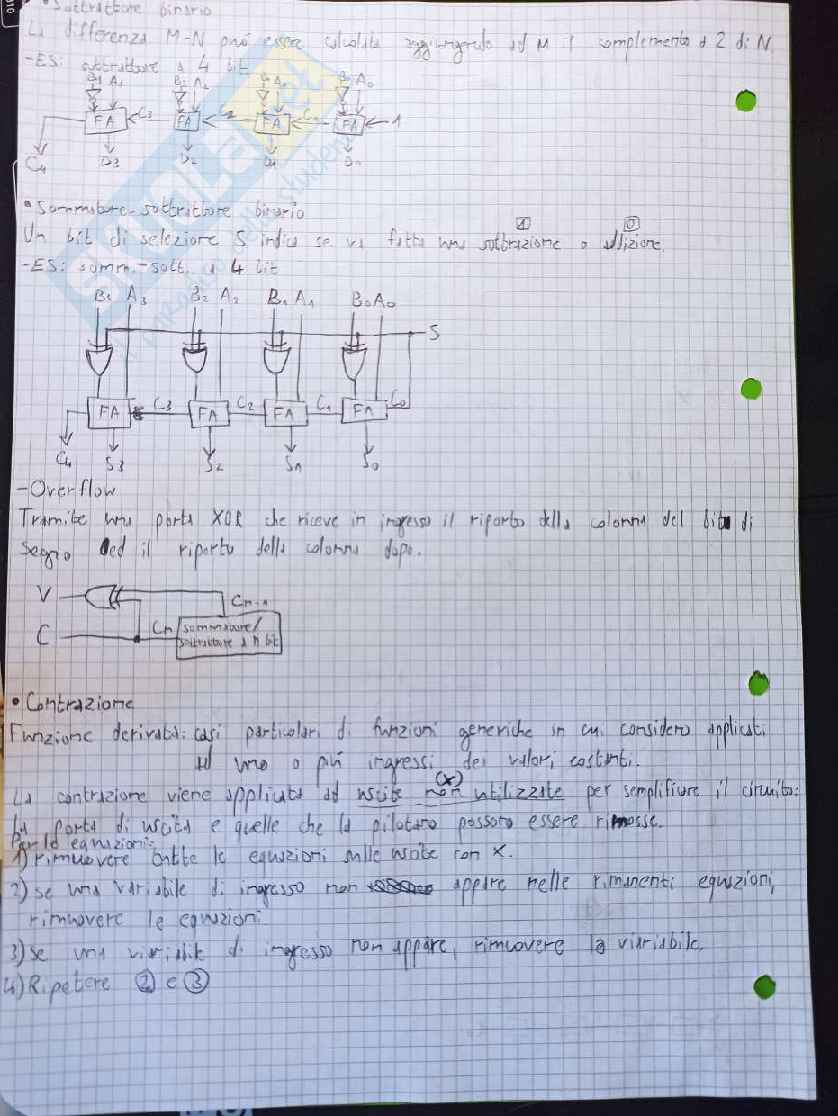 • Sottrattore binario
La differenza M-N può essere calcolata aggiungendo ad M il complemento a 2 di N.
-ES: sottrattore a 4 bit
B3 A3 B2 A2 B1 A1 B0 A0
FA C3 FA C2 FA C1 FA 1
C4 D3 D2 D1 D0
• Sommatore-sottrattore binario
1 0
Un bit di selezione S indica se va fatta una sottrazione o addizione.
-ES: somm.-sott. a 4 bit
A3 B2 A2 B1 A1 B0 A0
S
FA C3 FA C2 FA C1 FA C0
C4 S3 S2 S1 S0
- Overflow
Tramite una porta XOR che riceve in ingresso il riporto della colonna del bit di
segno ed il riporto della colonna dopo.
V
Cn-1
C Cn sommatore/
sottrattore a n bit
• Contrazione
Funzione derivata: casi particolari di funzioni generiche in cui considero applicati
ad uno o più ingressi dei valori costanti.
(x)
La contrazione viene applicata ad uscite non utilizzate per semplificare il circuito:
la porta di uscita e quelle che la pilotano possono essere rimosse.
Per le equazioni:
1) rimuovere tutte le equazioni sulle uscite con X.
2) se una variabile di ingresso non appare nelle rimanenti equazioni,
rimuovere le equazioni
3) se una variabile di ingresso non appare, rimuovere la variabile.
4) Ripetere 2 e 3